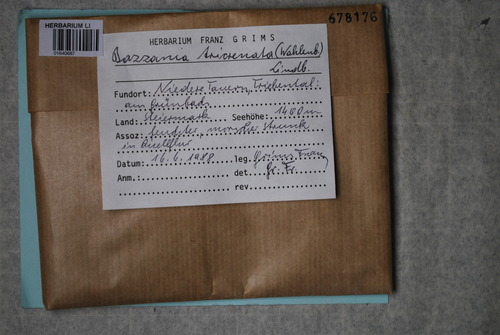 HERBARIUM LI
01640687
678176
HERBARIUM FRANZ GRIMS
Bazzania tricrenata (Wahlenb.)
Lindb.
Fundort: Niedere Tauern, Triebental:
am
Land: Steiermark Seehöhe: 1400 m
Assoz: morscher Strunk
in
Datum: 16.6.1988 leg. Grims Franz
Anm.: det. Gr. Fr.
rev.